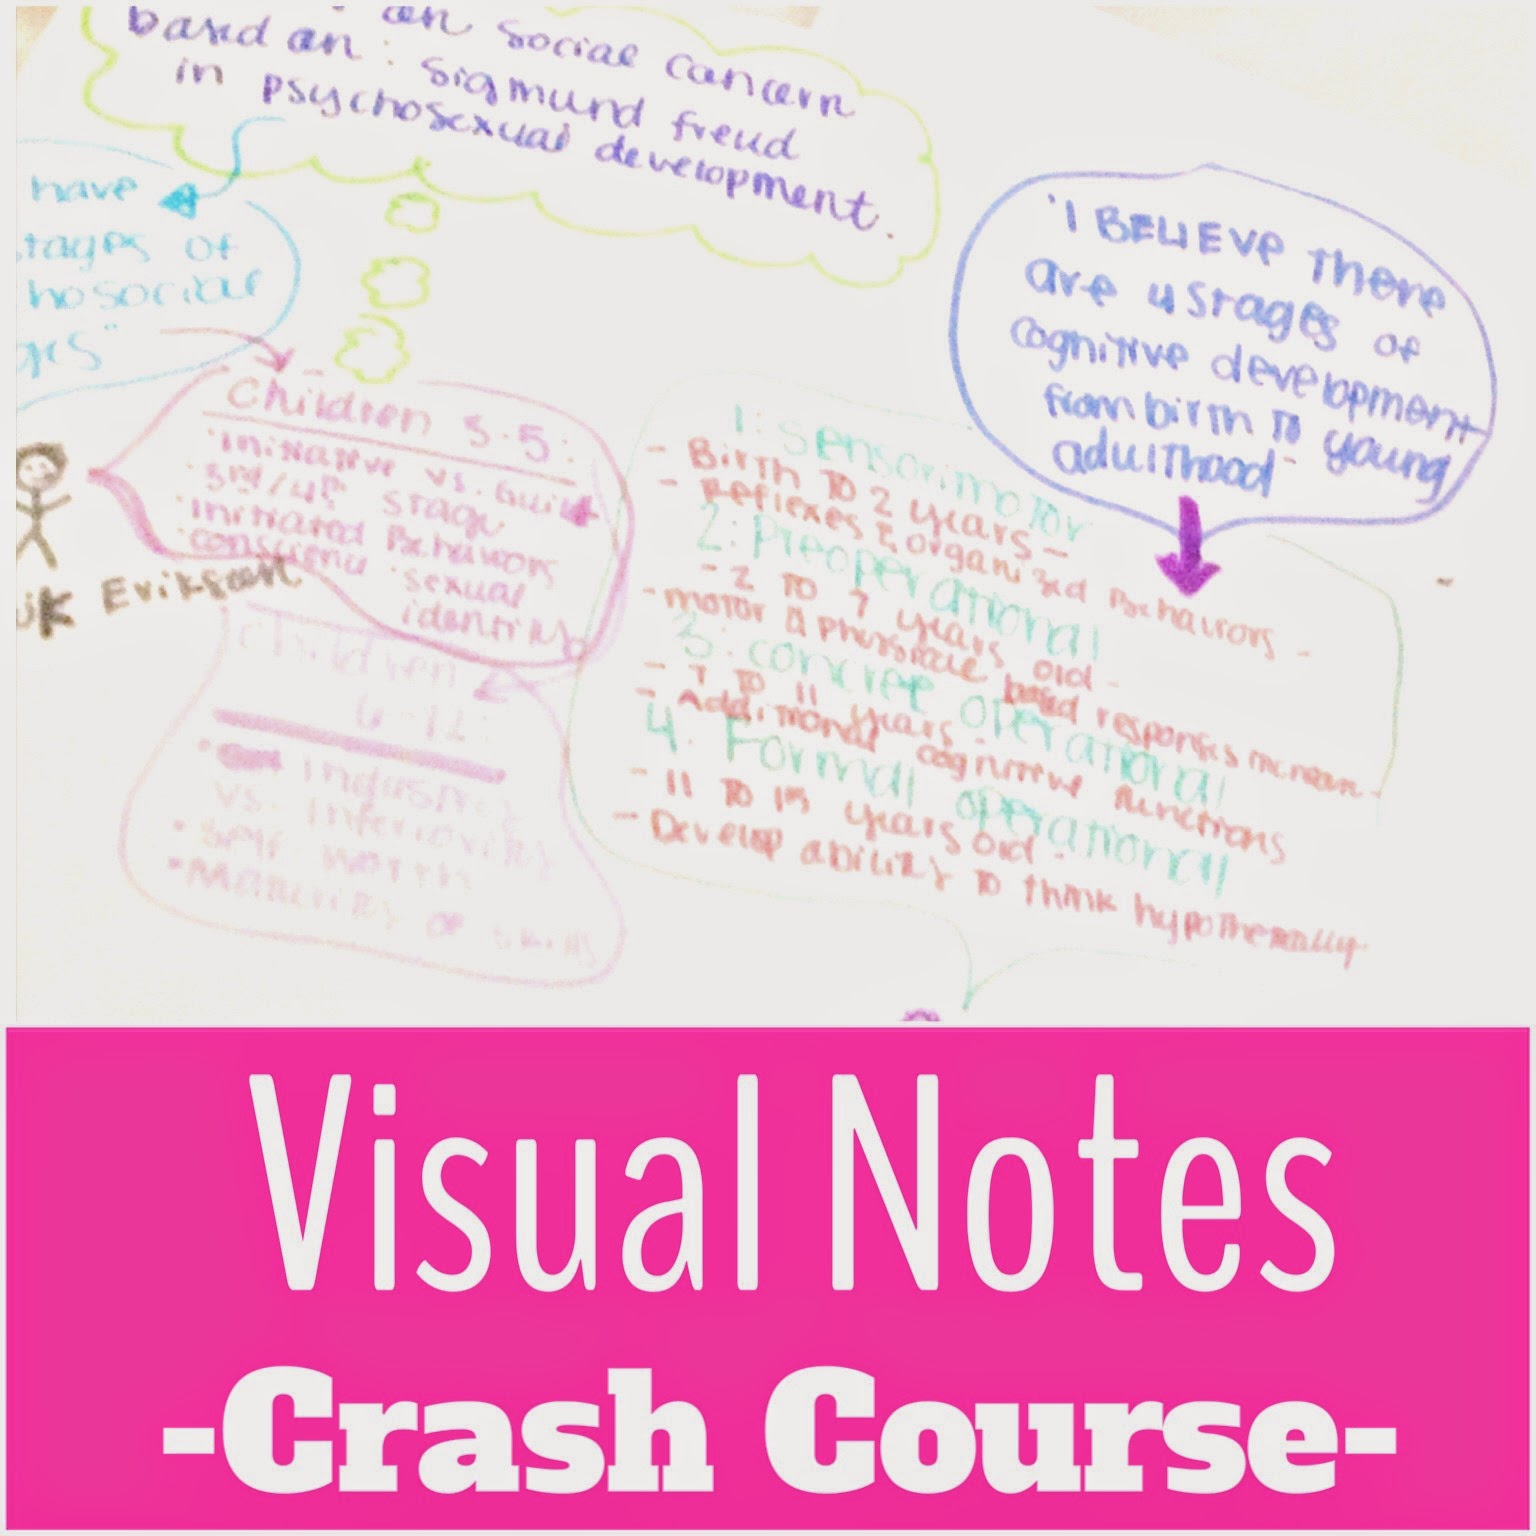 an social concern
based on: Sigmund freud
in psychosexual development.
have
tages of
hosocial
ges"
Children 3-5:
·Initiative vs. Guilt
·3rd/4th stage
·initiated Behaviors
·conscience ·sexual
identity
ik Erikson
children
6-12:
· Industry
vs. Inferiority
· Self worth
· Maturity of skills
'I BELIEVE There
are 4 stages of
cognitive development
from birth to young
adulthood-
1: Sensorimotor
- Birth to 2 years -
- Reflexes & organized Behaviors -
2: Preoperational
- 2 to 7 years old -
- motor & physical based responses increase -
3: concrete operational
- 7 to 11 years -
- Additional cognitive functions
4: Formal operational
- 11 to 15 years old -
- Develop ability to think hypothetically-
Visual Notes
-Crash Course-